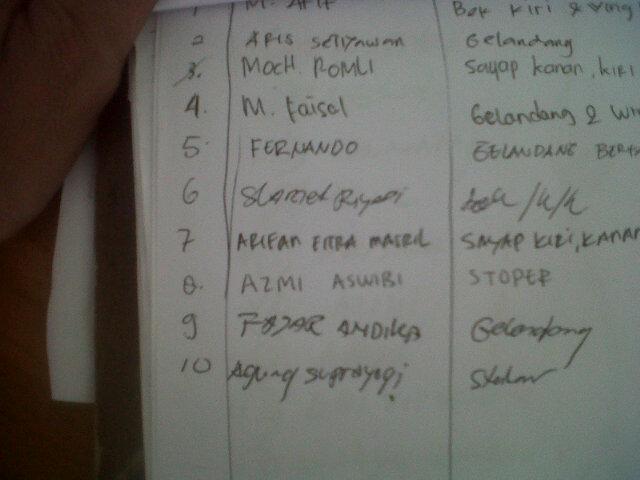 1 M. AFIF Bek Kiri & Wing
2 ARIS Setiyawan Gelandang
3. MOCH. ROMLI Sayap Kanan, Kiri
4. M. Faisal Gelandang & Wi
5 FERNANDO GELANDANG BERTA
6 Slamet Riyadi bek /k/k
7 ARIFAN FITRA SAYAP KIRI, KANAN
8. AZMI ASWIBI STOPER
9 FAJAR ANDIKA Gelandang
10 Agung Suprayogi